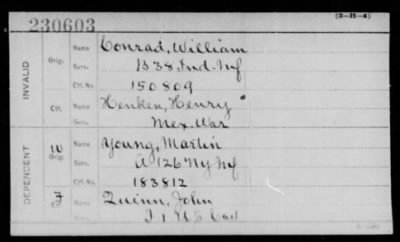 230603
(3-21-4)
INVALID
Orig.
Name
Conrad, William
Serv.
B 38 Ind. Inf
Ctf. No.
150809
Ctf.
Name
Henken, Henry
Serv.
Mex. War
DEPENDENT
W
Orig.
Name
Young, Martin
Serv.
A 126 Ny Inf
Ctf. No.
183812
Ctf.
Name
Quinn, John
Serv.